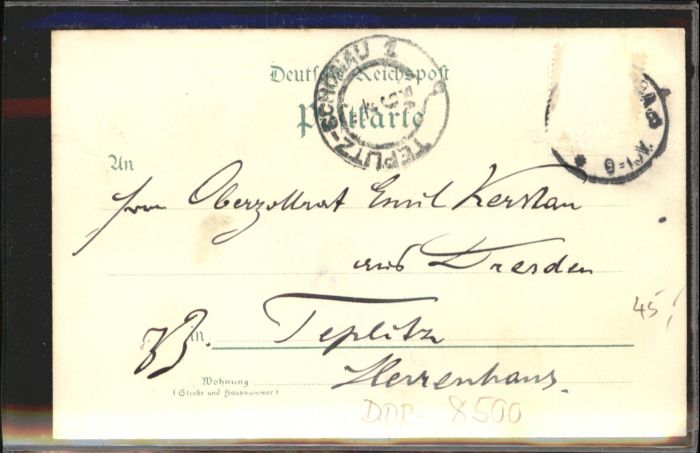 Deutsche Reichspost
Postkarte
TEPLITZ-SCHÖNAU 1
9-10V.
An
Herrn Oberzollrat Emil Kerstan
aus Dresden
z Z. in Teplitz
Herrenhaus.
Wohnung
(Straße und Hausnummer)
45
DDR- 8500